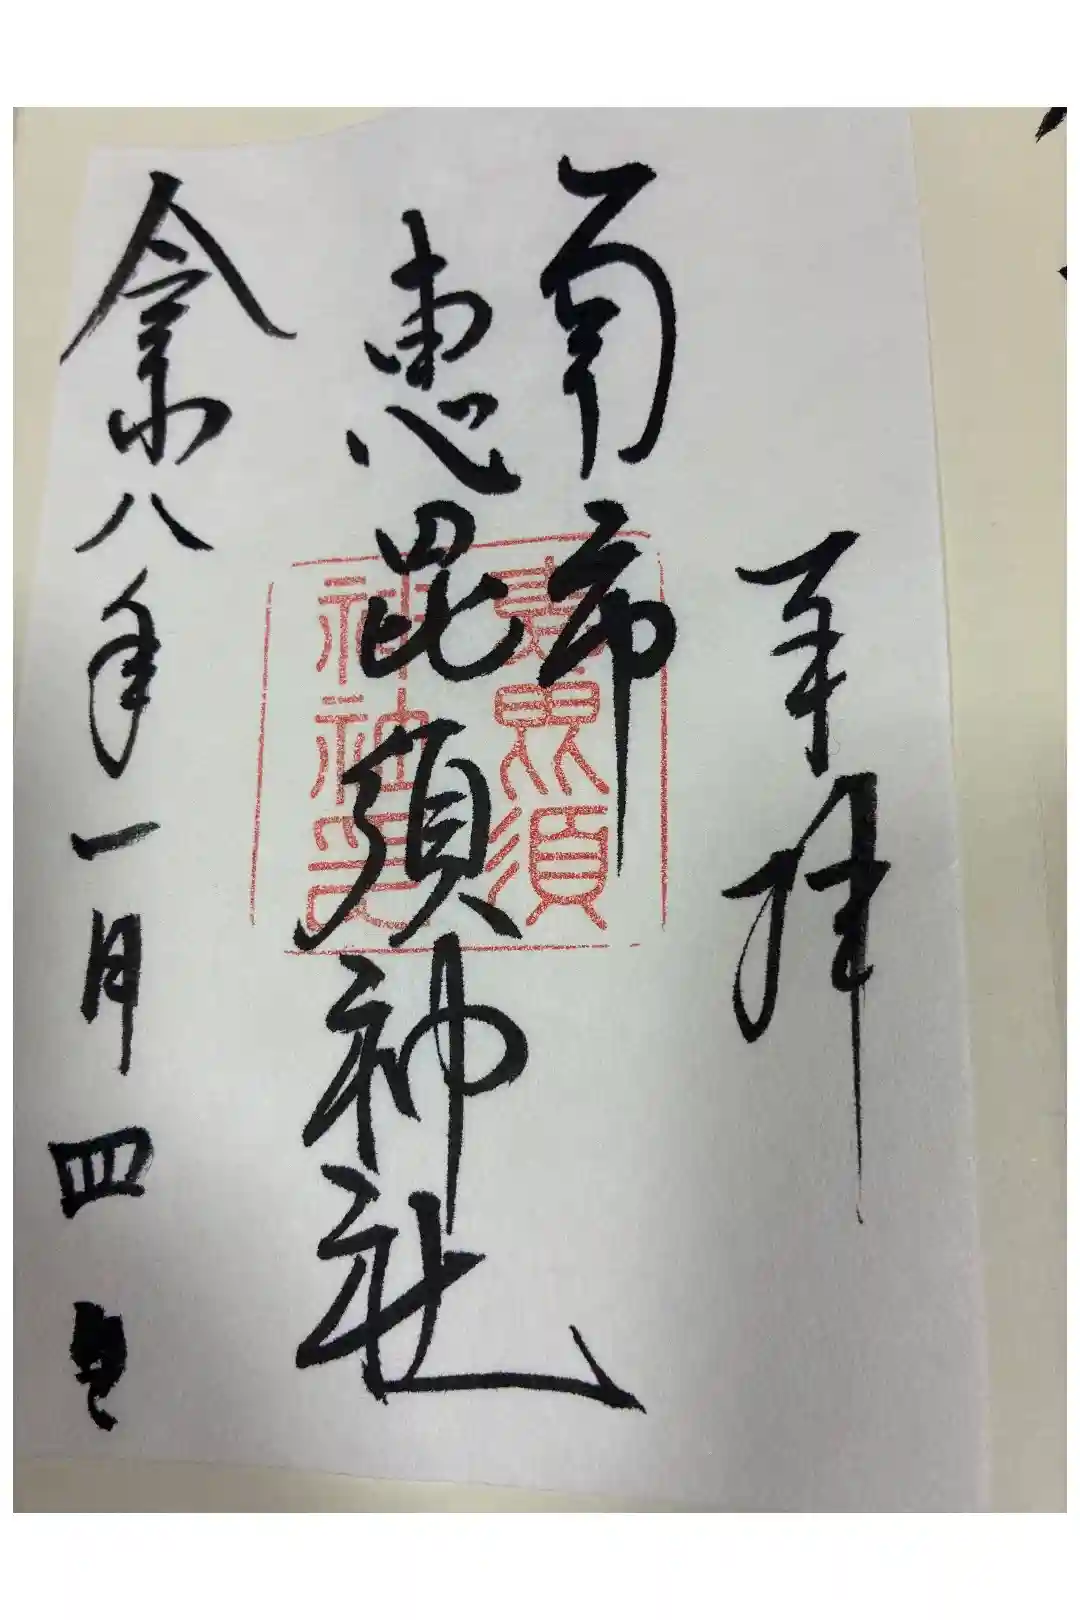 奉拝
南市
恵毘須神社
令和八年一月四日
恵毘須
神社印